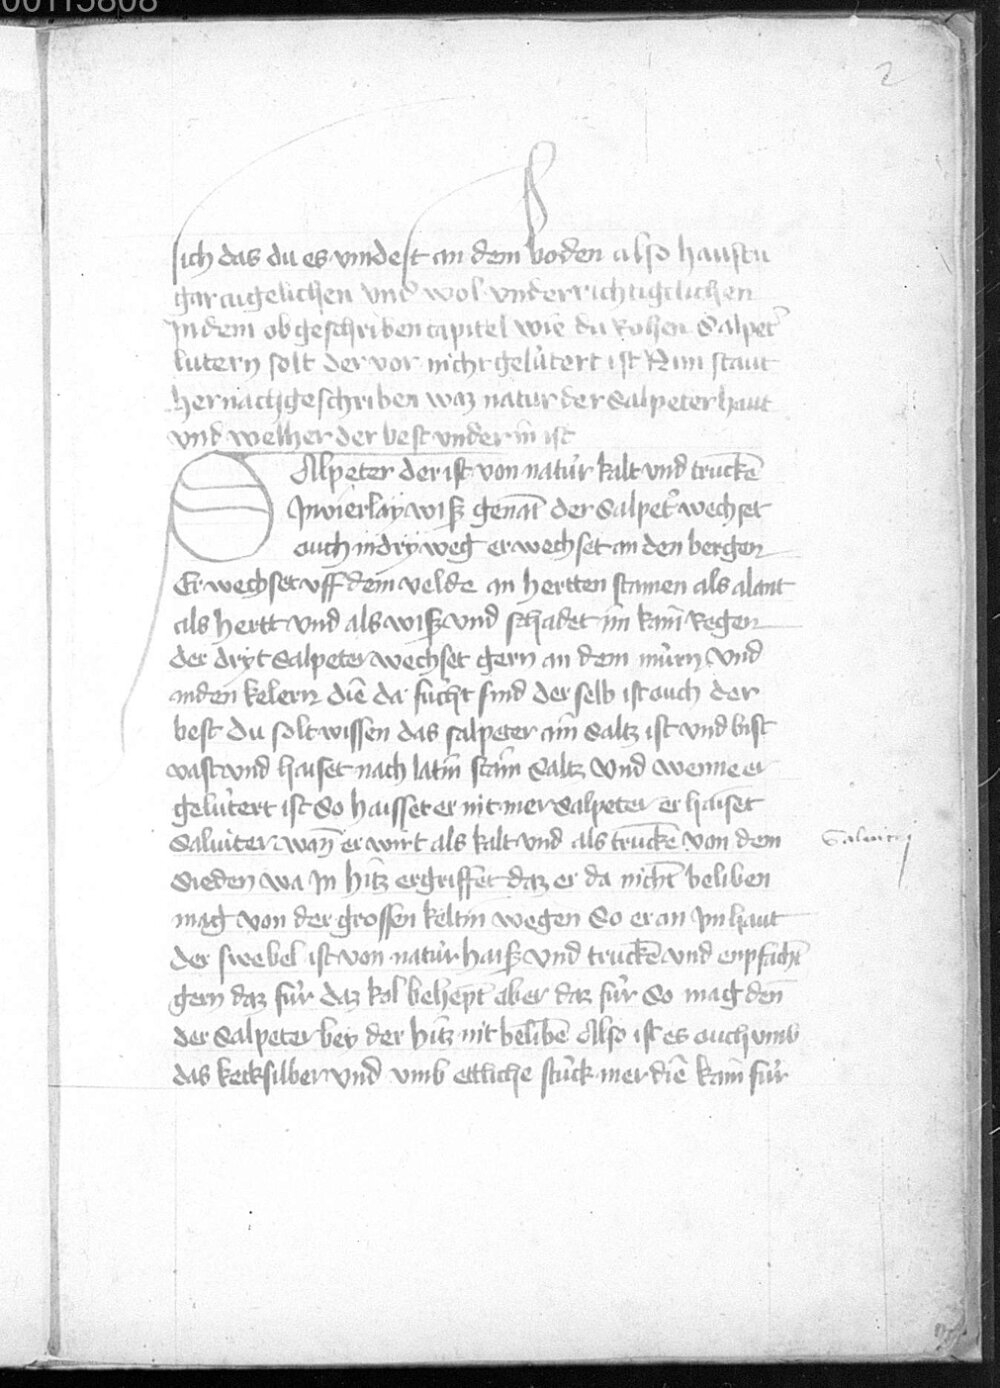 00115808
2
sich das du es vindest an dem boden also haustu
gar aigelichen vnd wol vnderrichtigclichen
In dem obgeschriben capitel wie du Rohen Salpet̉
lutern solt der vor nicht gelu̔tert ist Nun staut
hernachgeschriben waz natur der Salpeter haut
vnd welher der best vnder in ist
SAlpeter der ist von natu̔r kalt vnd trucke͂
In vierlay wiß gena͂t der Salpet̉ wechset
auch in dry weg er wechset an den bergen
Er wechset vff dem velde an hertten stainen als alant
als hertt vnd als wiß vnd schadet im kain Regen
der dryt Salpeter wechset gern an dem mu̔rn vnd
in den kelern die da fu̔cht sind der selb ist auch der
best du solt wissen das salpeter ain Saltz ist vnd bist
vast vnd haiset nach latin stain Saltz vnd wenne er
gelu̔tert ist So haisset er nit mer Salpeter er haiset
Saluiter wan̄ er wirt als kalt vnd als trucke͂ von dem
Saluiter
Sieden wa In hitz ergriffet daz er da nicht beliben
mag von der grossen keltin wegen So er an Im haut
der swebel ist von natu̔r haiß vnd trucke͂ vnd enpfacht
gern daz fu̔r daz kol behept aber daz fu̔r So mag den̄
der Salpeter bey der hitz nit belibe͂ Also ist es auch vmb
das kecksilber vnd vmb ettliche stu̔ck mer die kain fu̔r